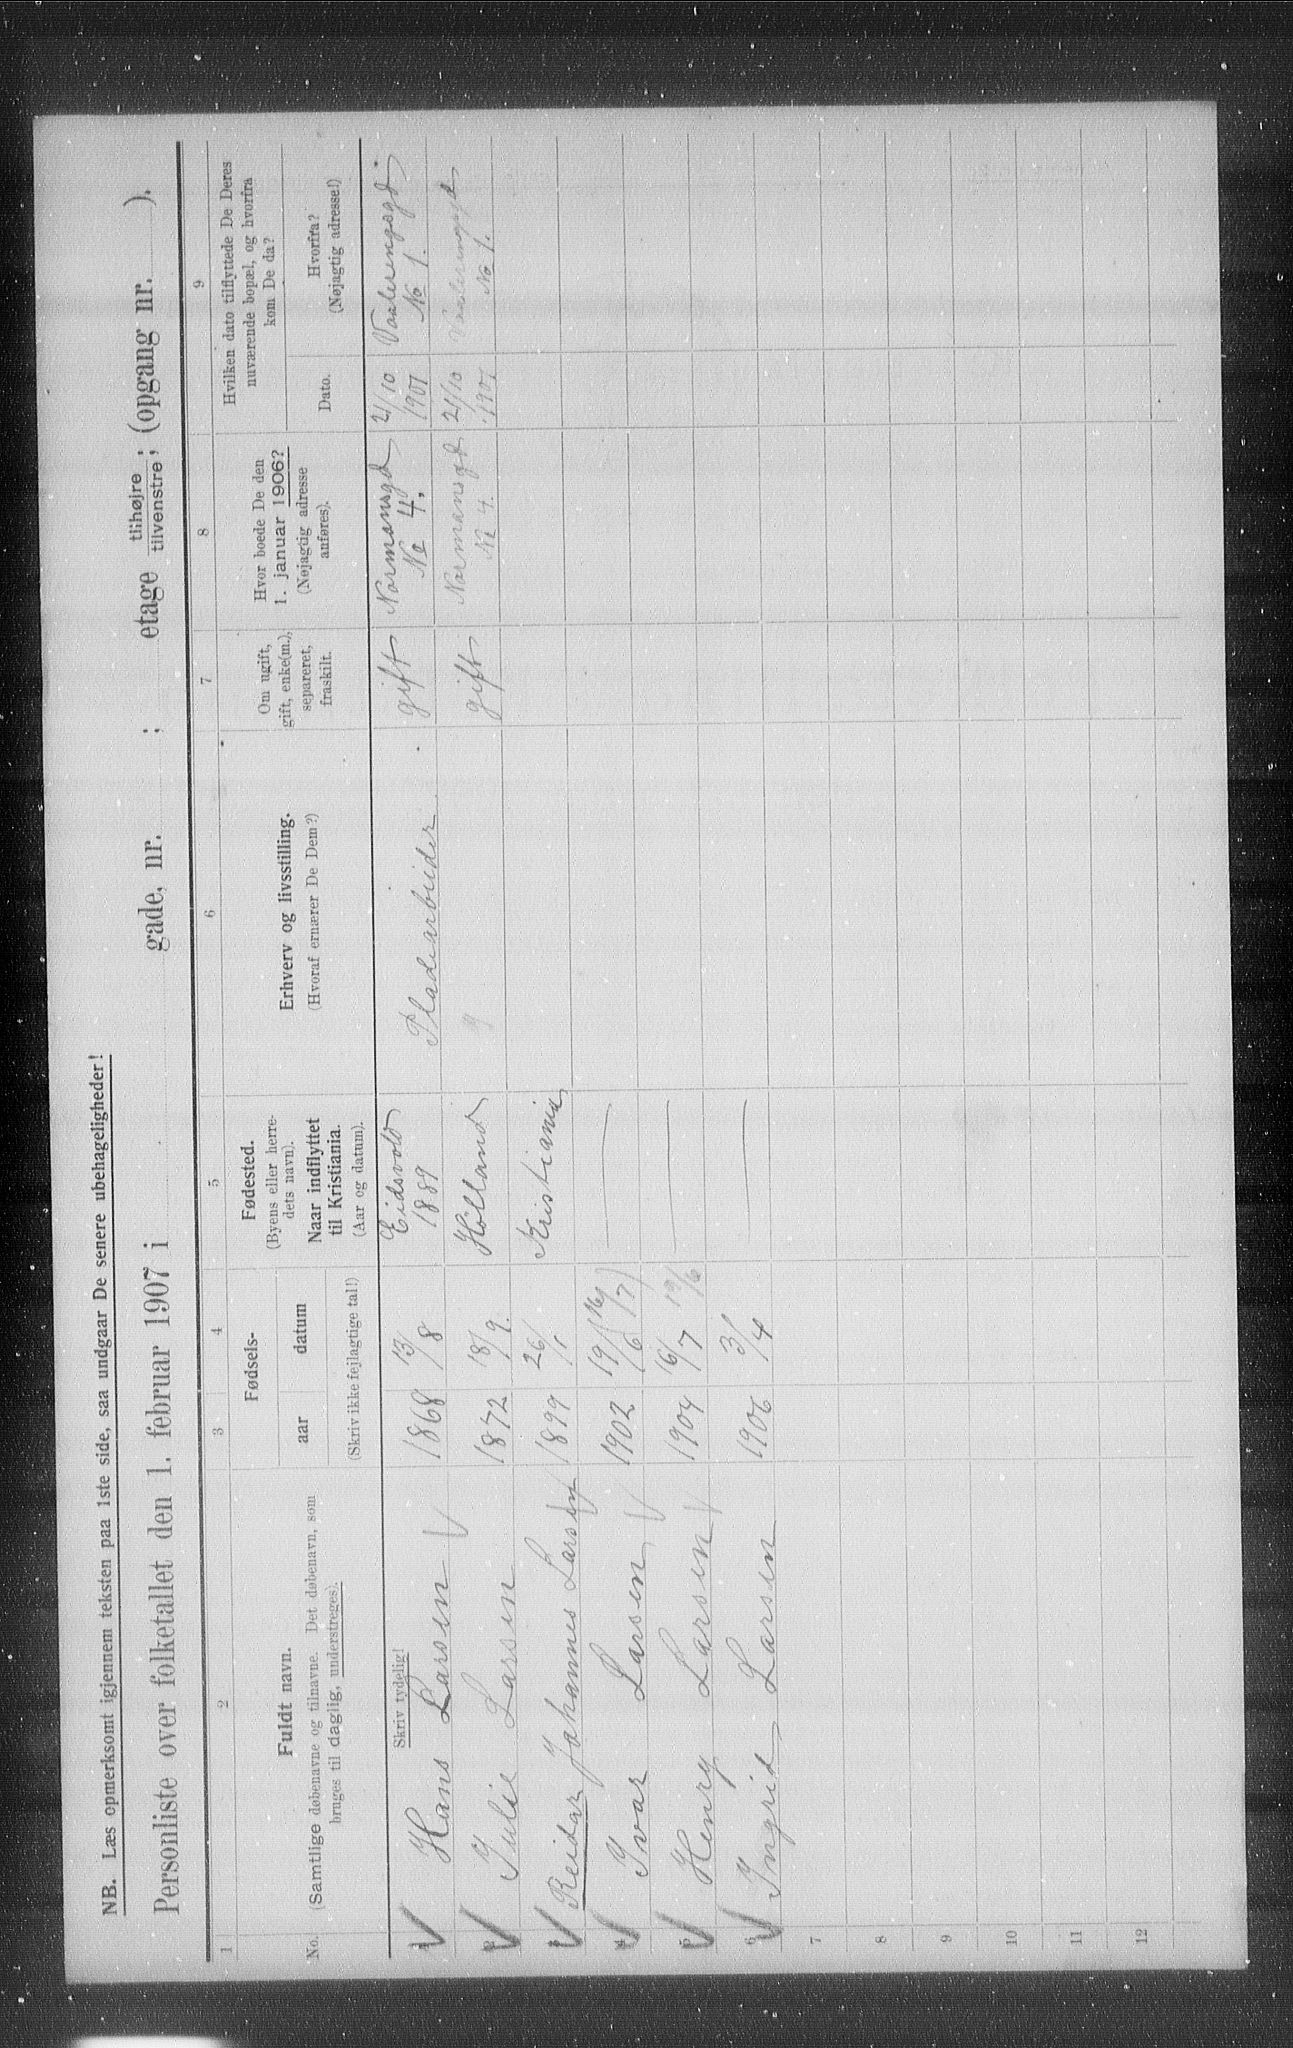 NB. Læs opmerksomt igjennem teksten paa 1ste side, saa undgaar De senere ubehageligheder!
Personliste over folketallet den 1. februar 1907 i gade, nr. ; etage tilhøjre ; tilvenstre, (opgang nr. ).
1 2 3 4 5 6 7 8 9
No.
Fuldt navn.
(Samtlige døbenavne og tilnavne. Det døbenavn, som
bruges til daglig, understreges).
Skriv tydelig!
Fødsels-
aar datum
(Skriv ikke fejlagtige tal!)
Fødested.
(Byens eller herre-
dets navn).
Naar indflyttet
til Kristiania.
(Aar og datum).
Erhverv og livsstilling.
(Hvoraf ernærer De Dem?)
Om ugift,
gift, enke(m.),
separeret,
fraskilt.
Hvor boede De den
1. januar 1906?
(Nøjagtig adresse
anføres).
Hvilken dato tilflyttede De Deres
nuværende bopæl, og hvorfra
kom De da?
Dato.
Hvorfra?
(Nøjagtig adresse!)
1 Hans Larsen 1868 13/8 Eidsvold 1889 Pladearbeider gift Normansgd No 4. 21/10 1907 Vaalerengsgd No 1.
2 Julie Larsen 1872 18/9. Hölland gift Normansgd No 4. 21/10 1907 Vaalerengsgd No 1.
3 Reidar Johannes Larsen 1899 26/1 Kristiania
4 Ivar Larsen 1902 19/6 (16/7) —
5 Henry Larsen 1904 16/7 19/6 —
6 Ingrid Larsen 1906 3/4 —
7
8
9
10
11
12